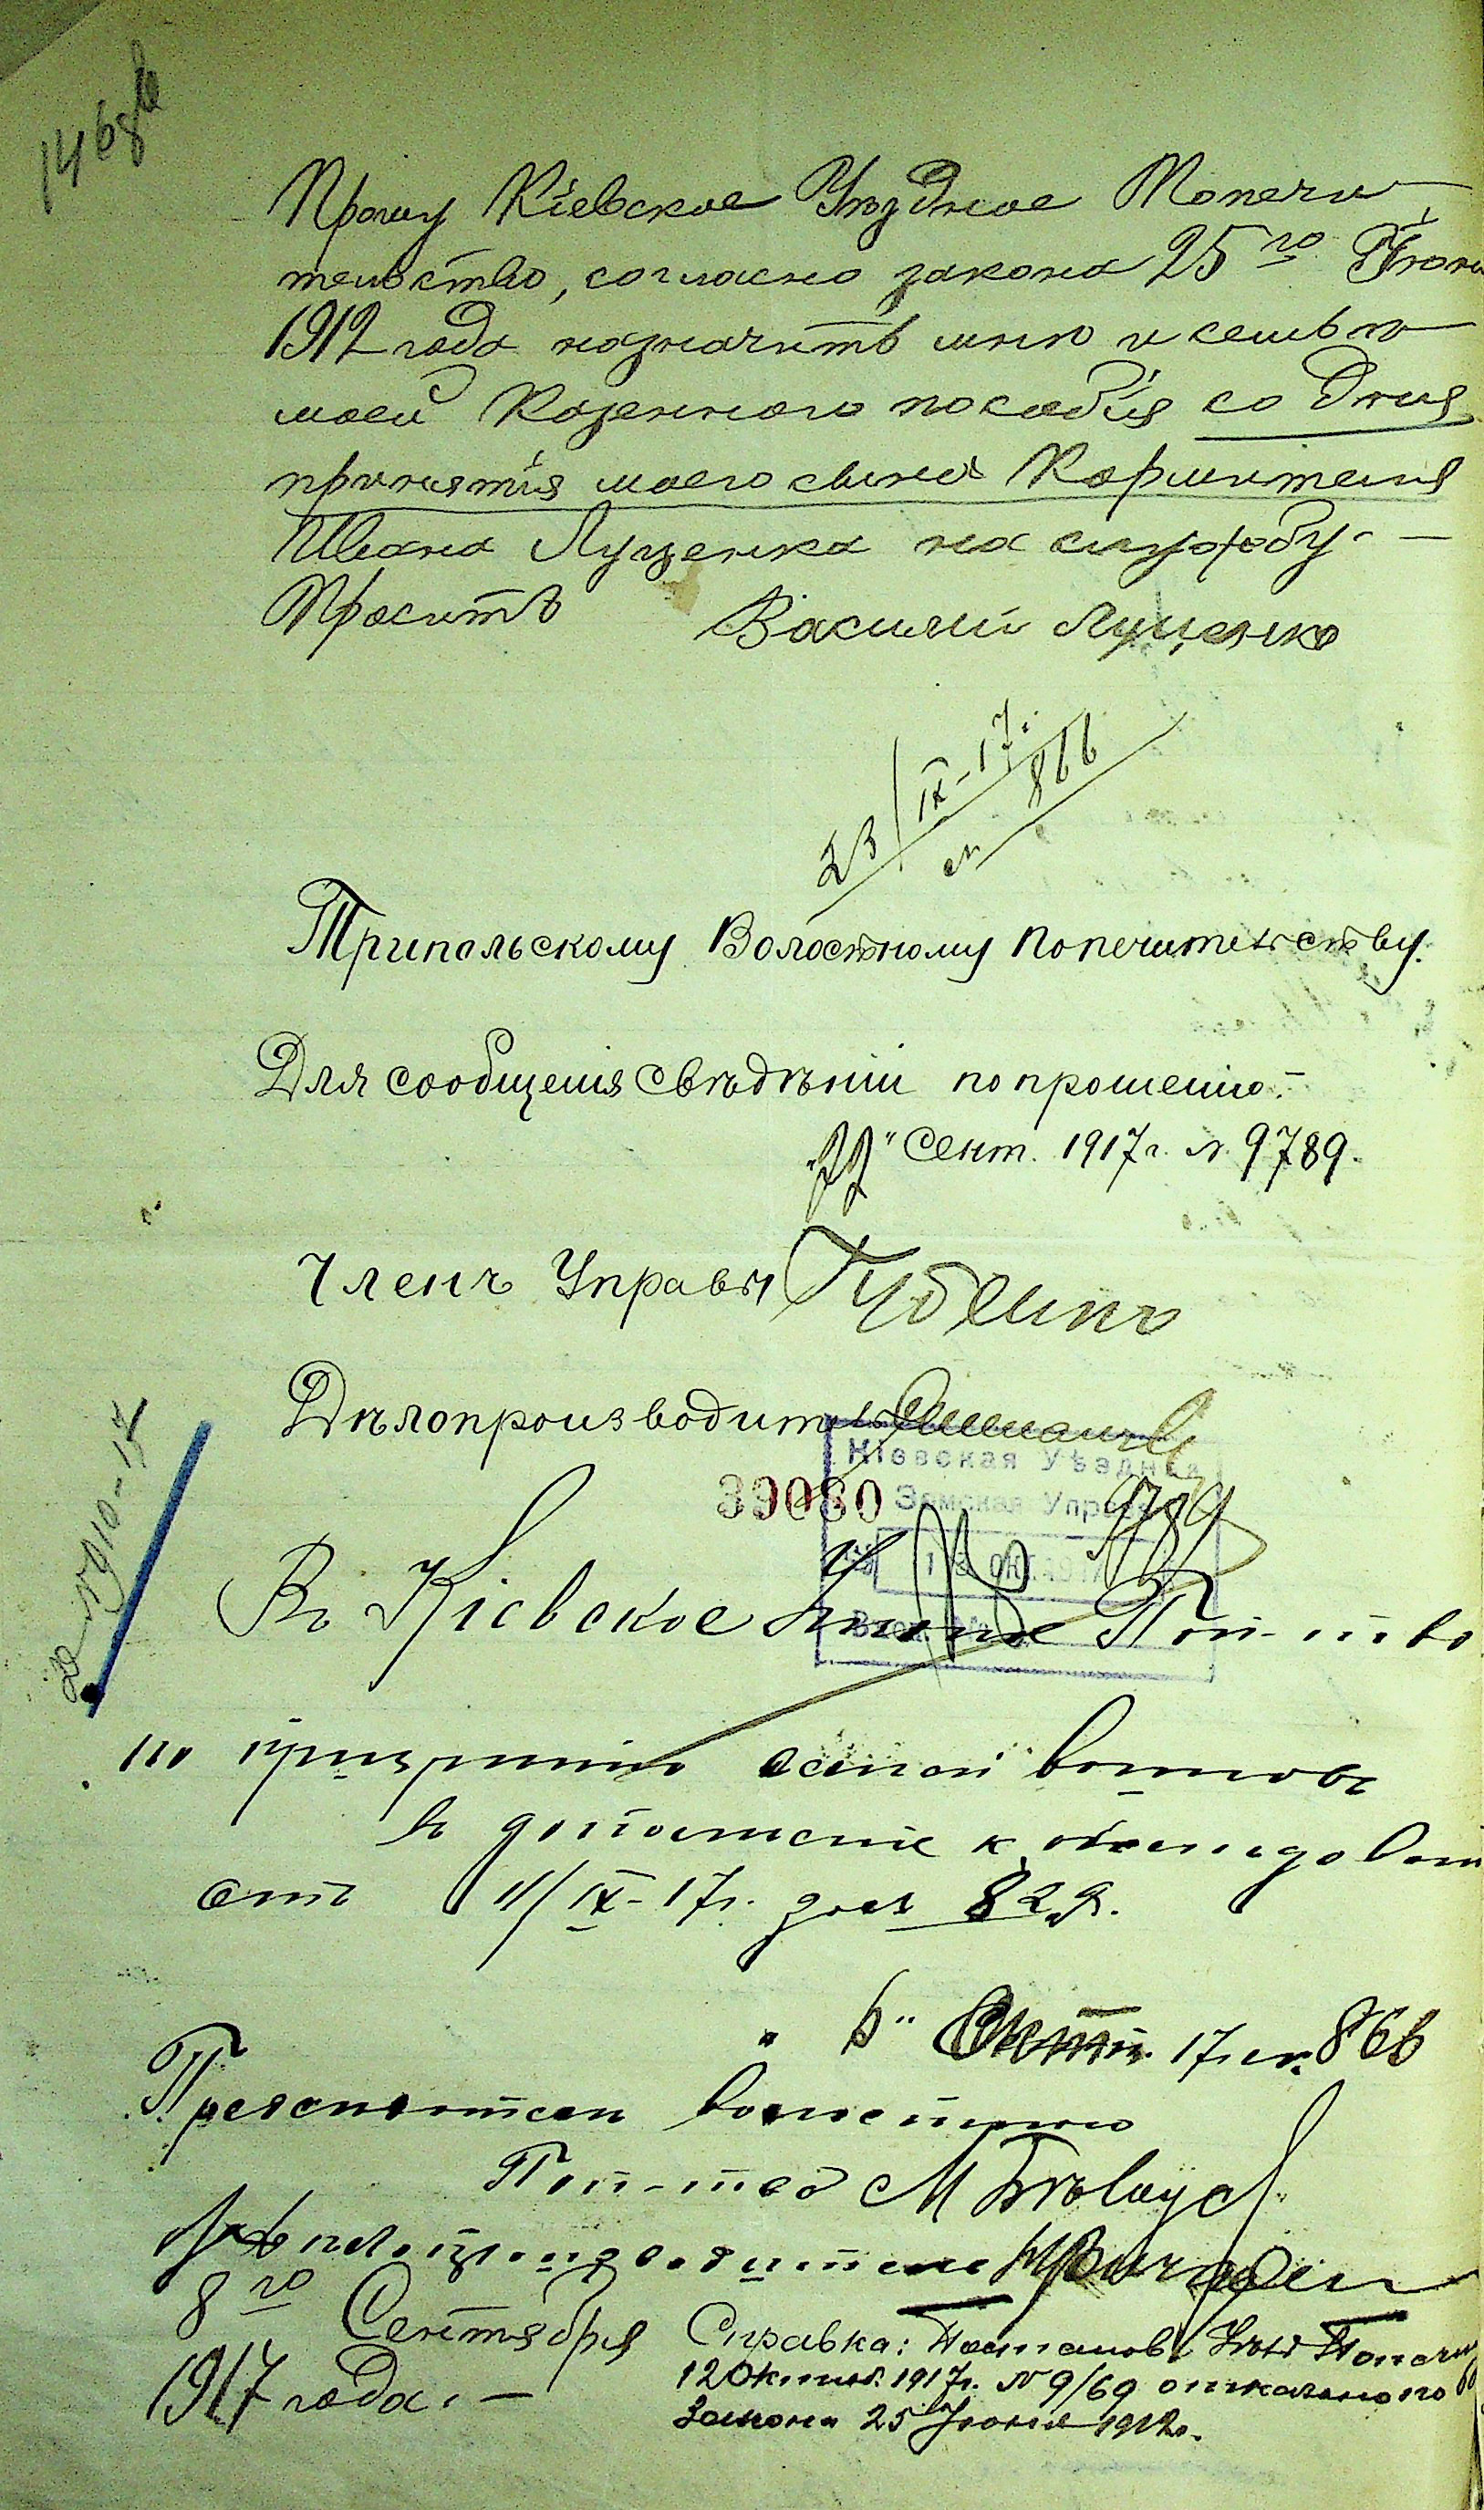 1468
Прошу Кіевское Уѣздное Попечи
тельство, согласно закона 25го Іюня
1912 года назначить мнѣ и семьѣ
моей Казеннаго пособія со дня
принятія моего сына Кормителя
Ивана Луценка на службу. —
Проситъ Василій Луценко
23/IX-17г.
№ 866
Трипольскому Волостному Попечительству.
Для сообщенія свѣдѣній по прошенію.
"22" Сент. 1917 г. № 9789.
Членъ Управы
Дѣлопроизводитель
Кіевская Уѣздная
39080 Земская Управа
9789
Въ Кіевское Поп-тво
по призрѣнію семей воиновъ
въ дополненіе к
отъ 11/IX-17г. за № 829.
"6" Окт. 17 г. № 866
волостного
Поп-тва М Бѣлоус
Дѣлопроизводитель
8го Сентября
1917 года. —
Справка: Постановл. Уѣзд Попечи
12 Октяб. 1917г. № 9/69 отказано по
Закона 25 Іюня 1912г.